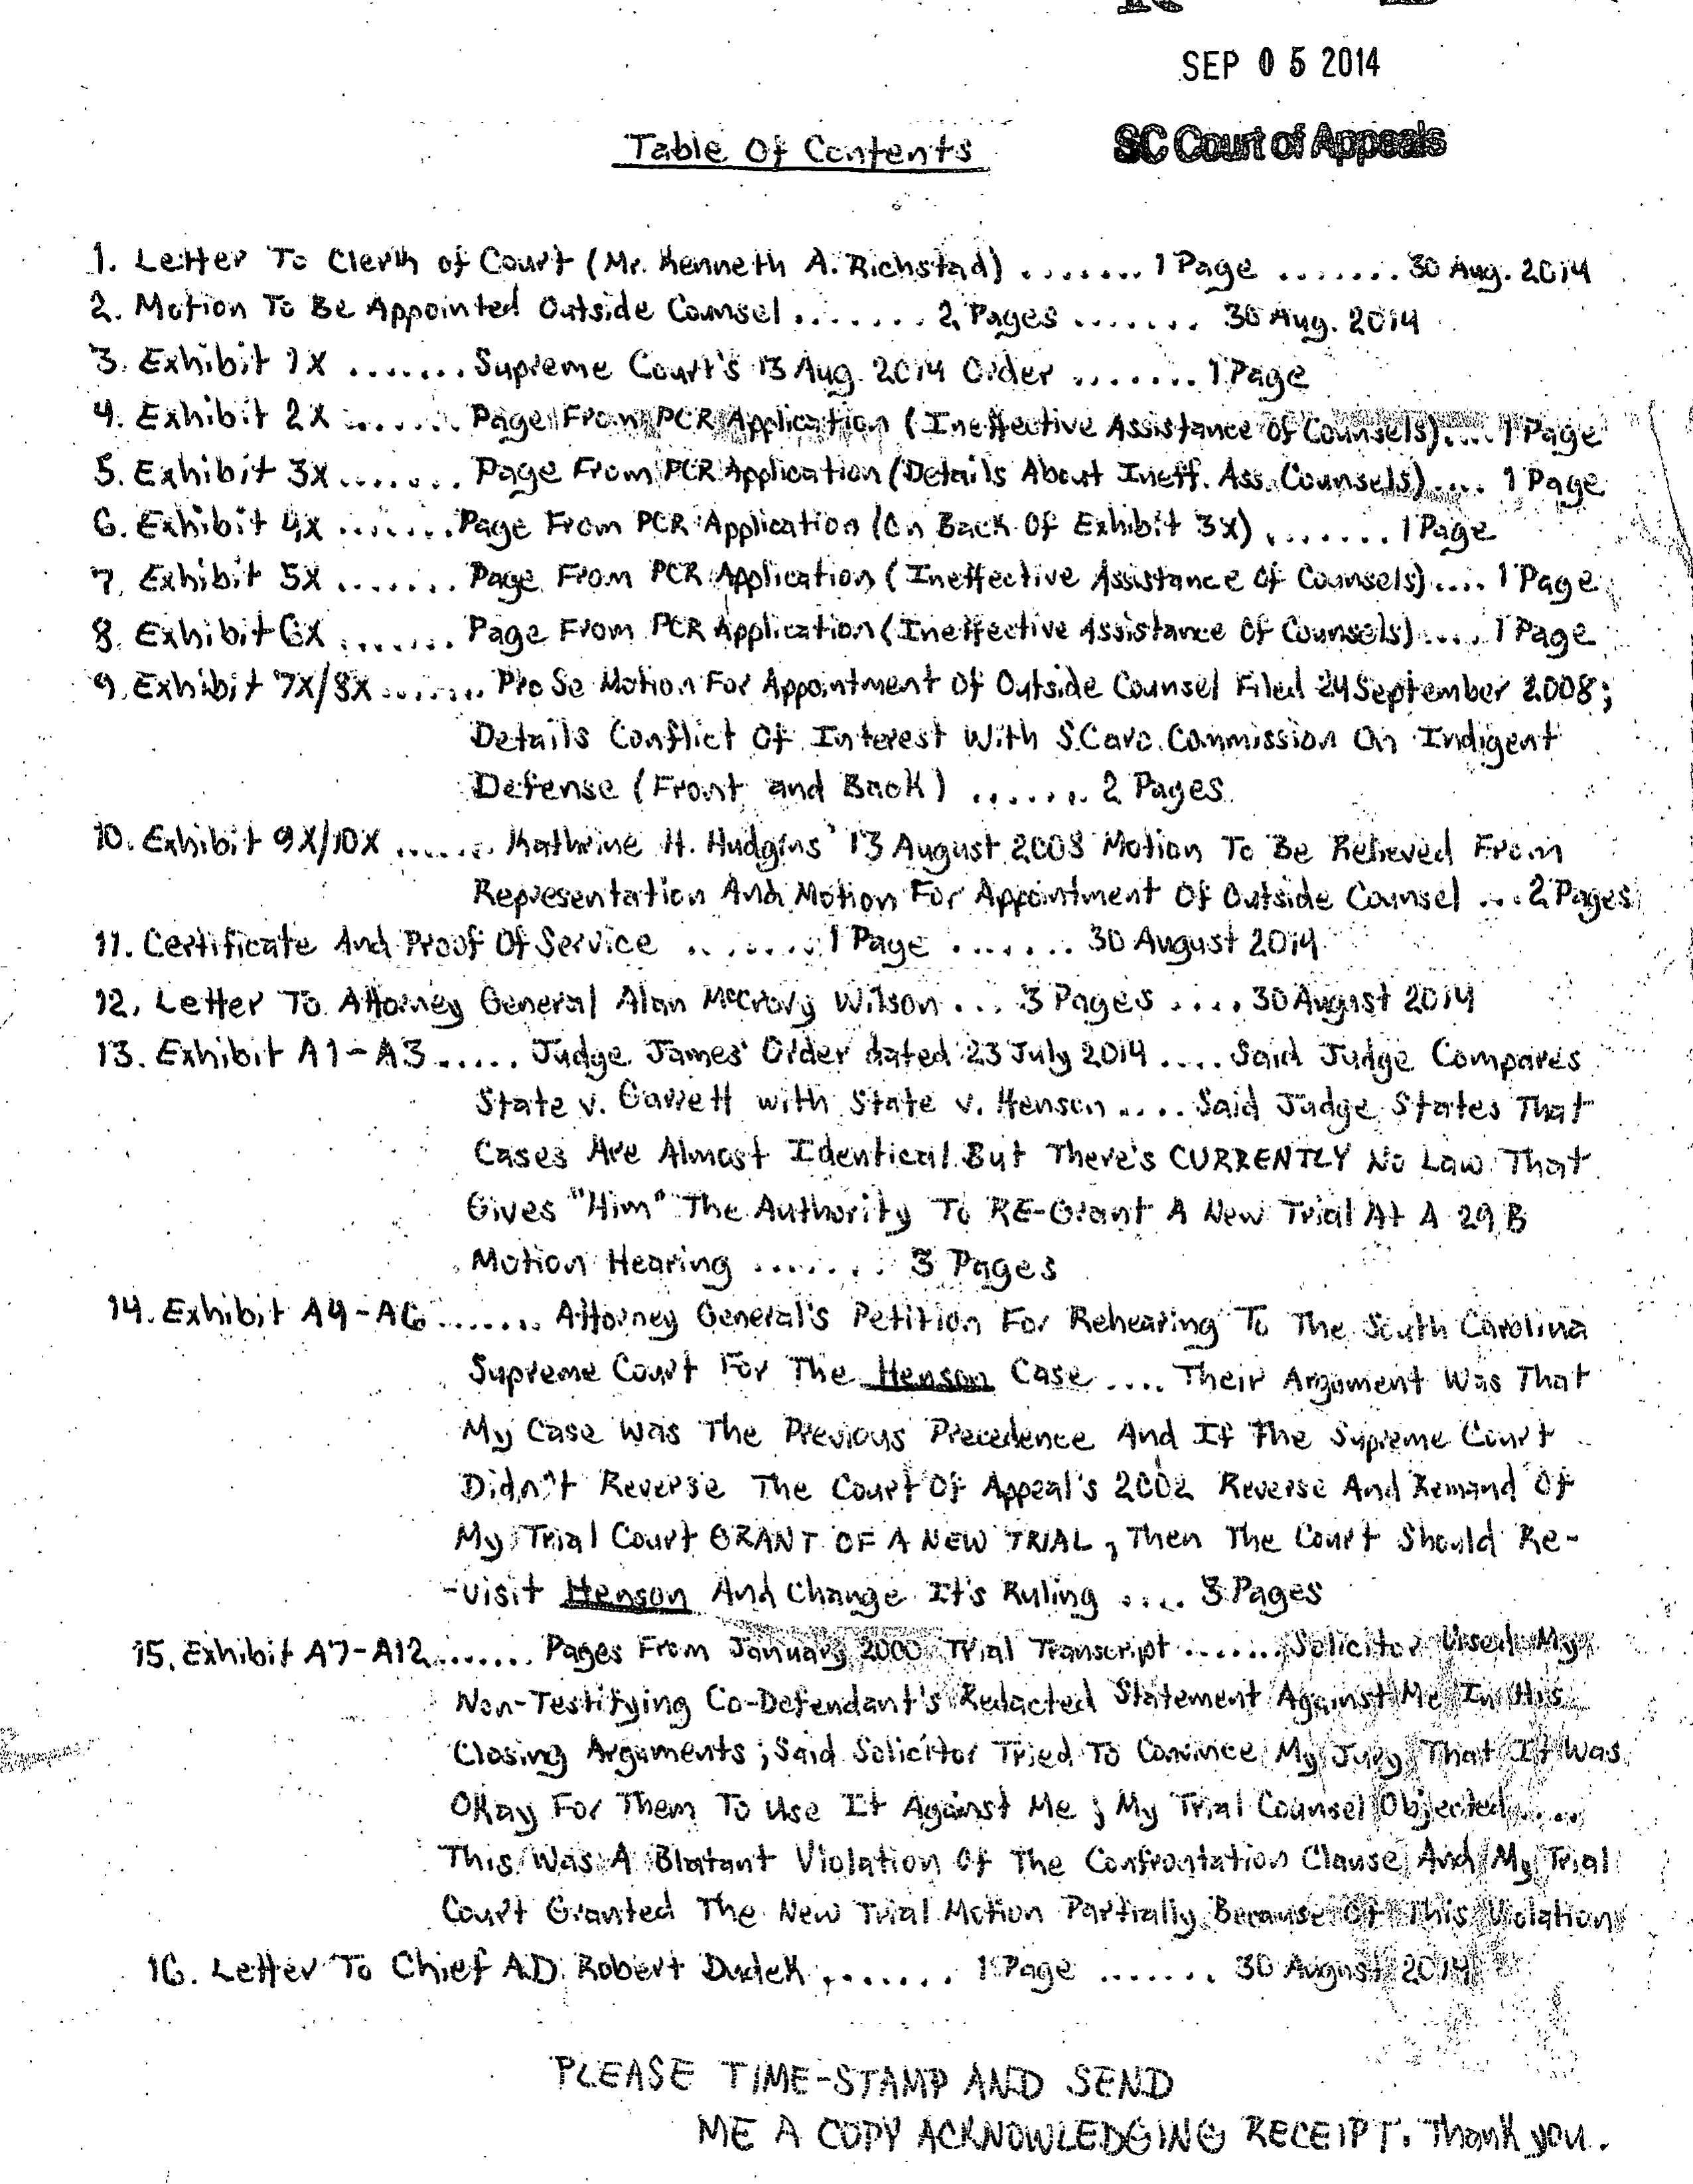 SEP 05 2014
Table Of Contents
SC Court of Appeals
1. Letter To Clerk of Court (Mr. Kenneth A. Richstad) ....... 1 Page ....... 30 Aug. 2014
2. Motion To Be Appointed Outside Counsel ....... 2 Pages ....... 30 Aug. 2014
3. Exhibit 1X ....... Supreme Court's 13 Aug. 2014 Order ....... 1 Page
4. Exhibit 2X ....... Page From PCR Application (Ineffective Assistance Of Counsels).... 1 Page
5. Exhibit 3X ....... Page From PCR Application (Details About Ineff. Ass. Counsels).... 1 Page
6. Exhibit 4X ....... Page From PCR Application (On Back Of Exhibit 3X) ....... 1 Page
7. Exhibit 5X ....... Page From PCR Application (Ineffective Assistance Of Counsels).... 1 Page
8. Exhibit 6X ....... Page From PCR Application (Ineffective Assistance Of Counsels).... 1 Page
9. Exhibit 7X/8X ....... Pro Se Motion For Appointment Of Outside Counsel Filed 24 September 2008;
Details Conflict Of Interest With S.Caro. Commission On Indigent
Defense (Front and Back) ....... 2 Pages
10. Exhibit 9X/10X ....... Kathrine H. Hudgins' 13 August 2008 Motion To Be Relieved From
Representation And Motion For Appointment Of Outside Counsel ... 2 Pages
11. Certificate And Proof Of Service ....... 1 Page ....... 30 August 2014
12. Letter To Attorney General Alan McCrory Wilson ... 3 Pages .... 30 August 2014
13. Exhibit A1-A3 ..... Judge James' Order dated 23 July 2014 .... Said Judge Compares
State v. Garrett with State v. Henson .... Said Judge States That
Cases Are Almost Identical But There's CURRENTLY No Law That
Gives "Him" The Authority To RE-Grant A New Trial At A 29 B
Motion Hearing ....... 3 Pages
14. Exhibit A4-A6 ....... Attorney General's Petition For Rehearing To The South Carolina
Supreme Court For The Henson Case .... Their Argument Was That
My Case Was The Previous Precedence And If The Supreme Court
Didn't Reverse The Court Of Appeal's 2002 Reverse And Remand Of
My Trial Court GRANT OF A NEW TRIAL, Then The Court Should Re-
-visit Henson And Change It's Ruling .... 3 Pages
15. Exhibit A7-A12 ....... Pages From January 2000 Trial Transcript ....... Solicitor Used My
Non-Testifying Co-Defendant's Redacted Statement Against Me In His
Closing Arguments; Said Solicitor Tried To Convince My Jury That It Was
Okay For Them To Use It Against Me; My Trial Counsel Objected....
This Was A Blatant Violation Of The Confrontation Clause And My Trial
Court Granted The New Trial Motion Partially Because Of This Violation
16. Letter To Chief A.D. Robert Dudek ....... 1 Page ....... 30 August 2014
PLEASE TIME-STAMP AND SEND
ME A COPY ACKNOWLEDGING RECEIPT. Thank you.